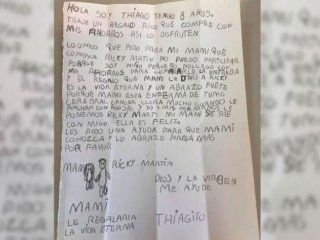 HOLA SOY THIAGO TENGO 8 AÑOS.
TRAJE UN REGALO RICO QUE COMPRE CON
MIS AHORROS ASI LO DISFRUTÉN
LO UNICO QUE PIDO PARA MI MAMI QUE
CONOSCA RICKY MATIN NO PUEDO PARTICIPAR
PORQUE SOY NIÑO PERO NO LLEGO CON
MIS AHORROS PARA COMPRARLE LA ENTRADA
Y EL REGALO QUE MAMI LE DARIA A RICKY
ES LA VIDA ETERNA Y UN ABRAZO FUETE
PORQUE MAMI ESTA ENFERMA DE TUMO
CEREBRAL CANCER LLORA MUCHO CUANDO LE
PINCHAN CON AGUJAS Y YO Y MIS HERMANOS LE
PONEMOS RICKY MARTI MI MAMI SE RIE
CON MIGO ELLA ES FELIZ
LES PIDO UNA AYUDA PARA QUE MAMI
CONOZCA Y LO ABRAZE NADA MAS
POR FAVOR
MAMI RICKY-MARTIN
DIOS Y LA VIRGEN
ME AYUDE
MAMI
LE REGALARIA
LA VIDA ETERNA
THIAGITO